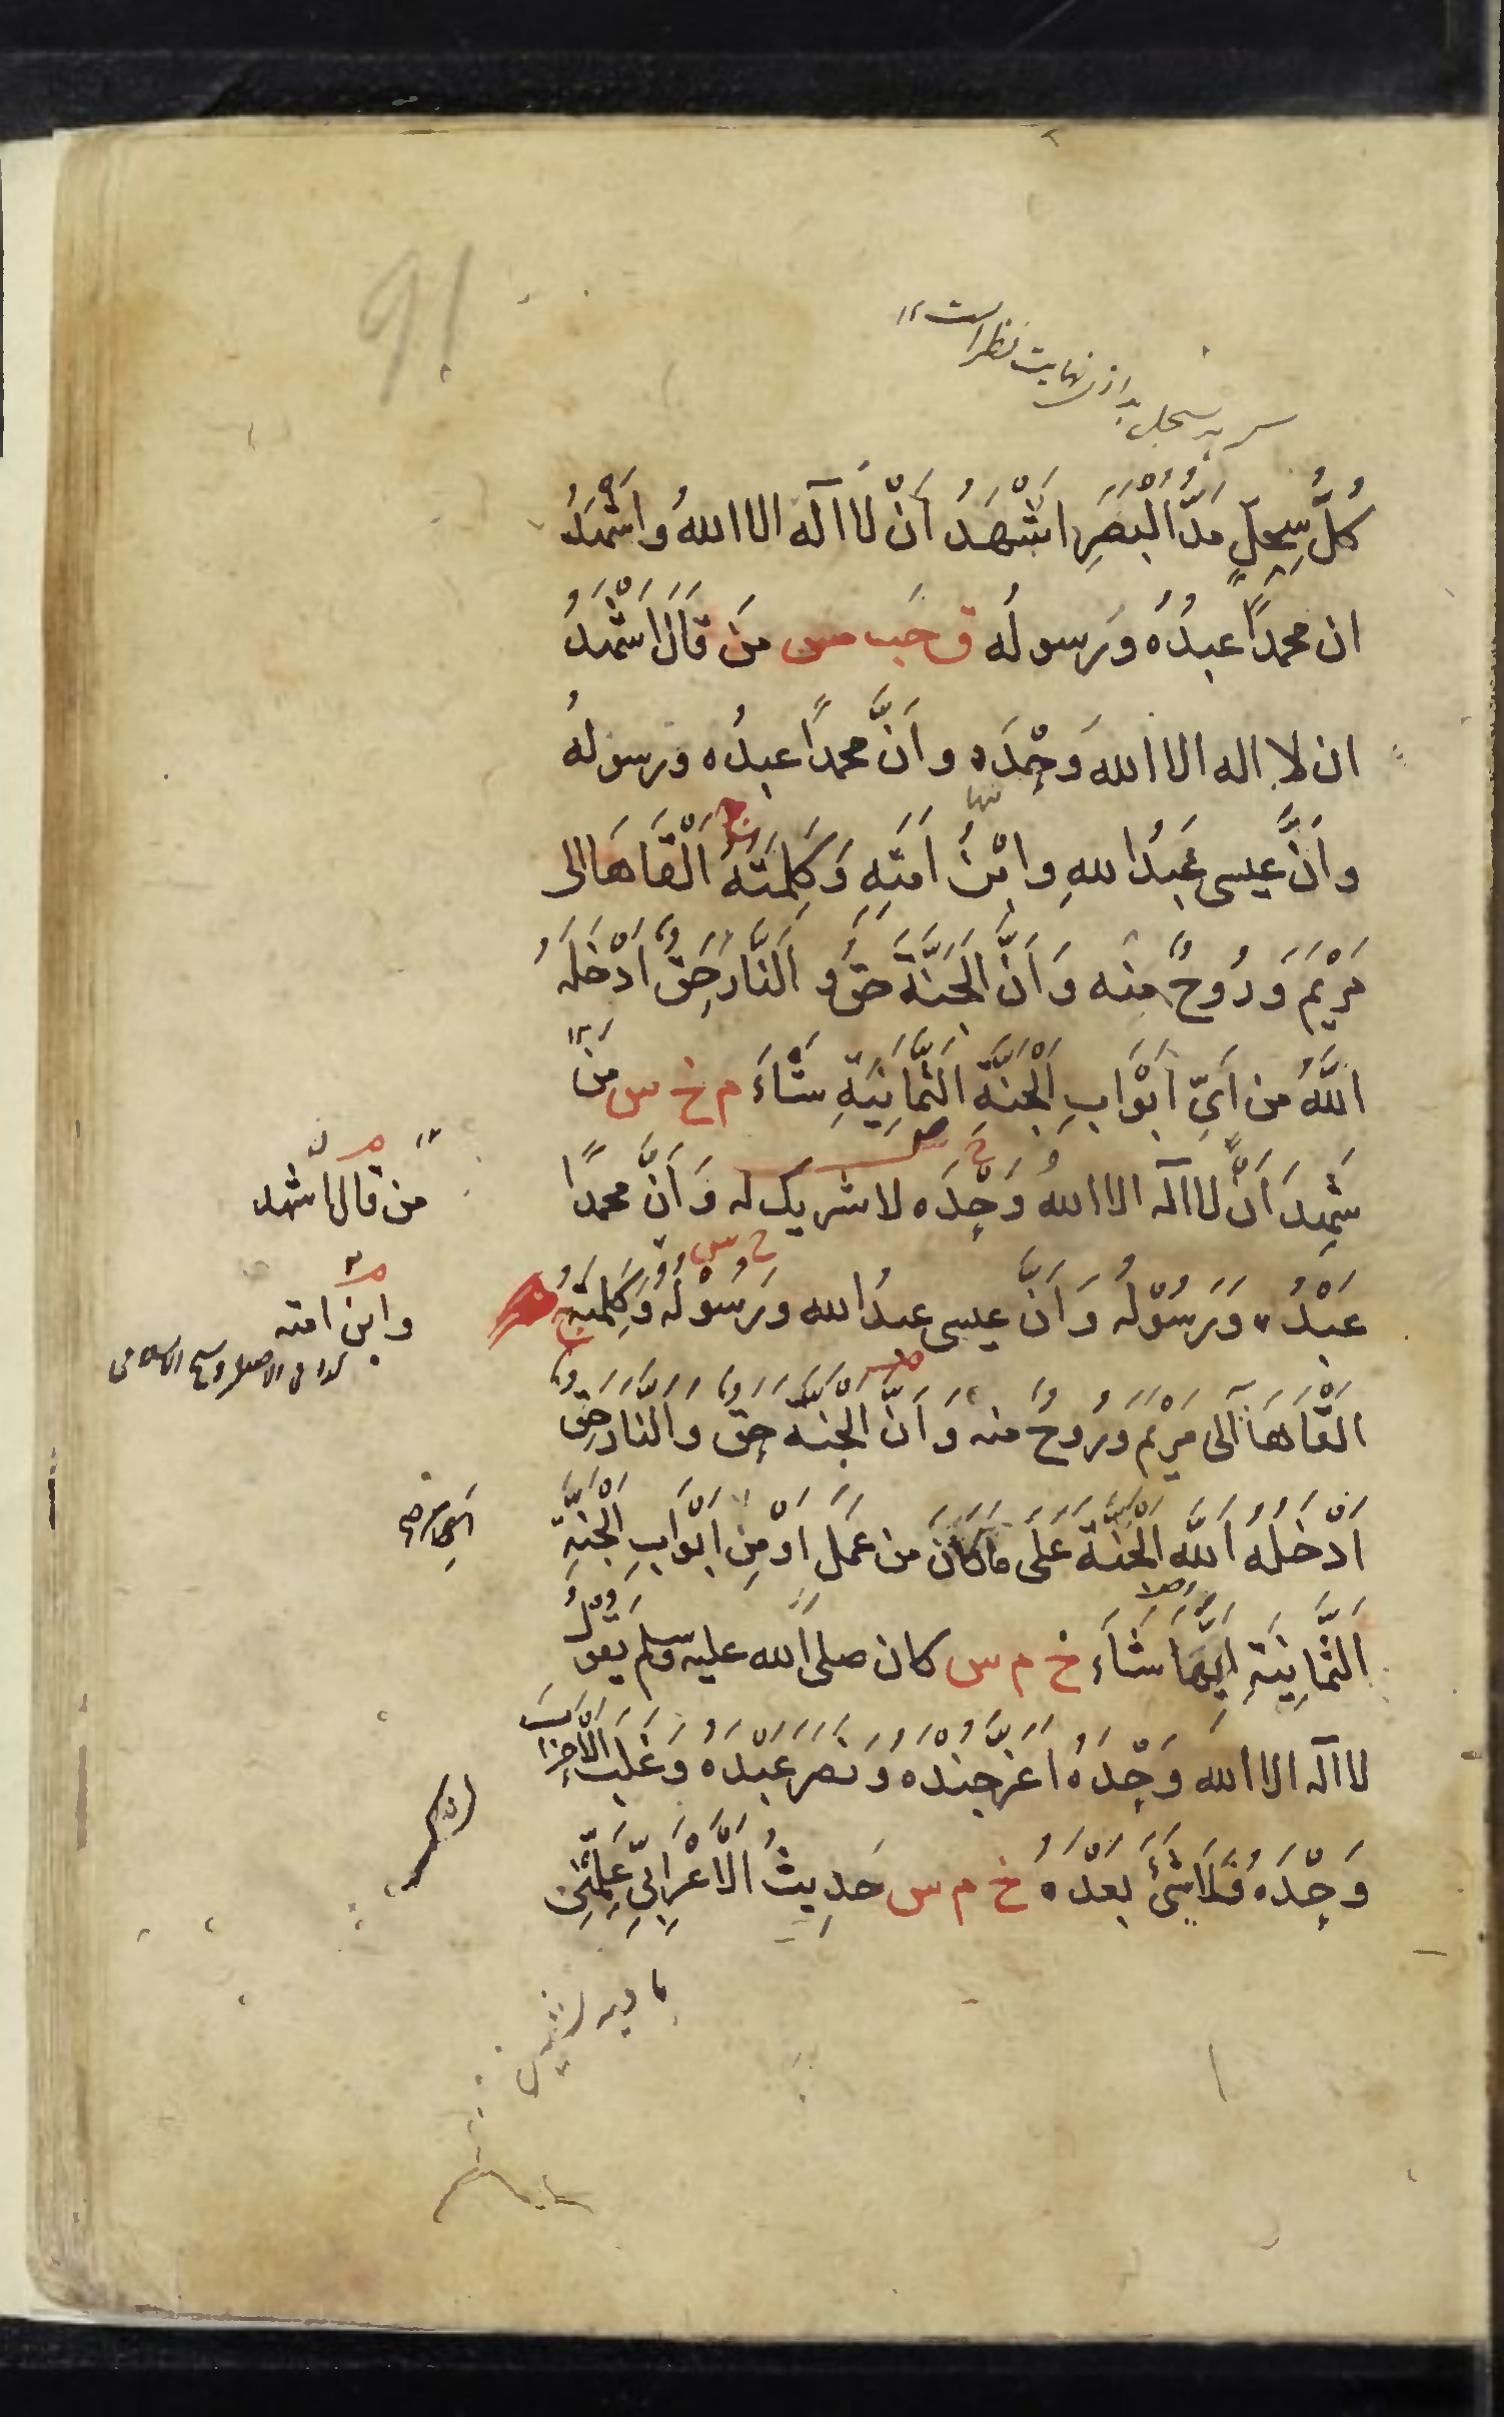 هر سجل بدرازی نهایت نظر است
كُلُّ سِجِلٍّ مَدَّ الْبَصَرِ اَشْهَدُ اَنْ لَا اِلٓهَ الا اللهُ وَاَشْهَدُ
ان محمدًا عبدُهُ ورسولُهُ ق حب مس مَن قَالَ اَشْهَدُ
ان لا اله الا الله وَحْدَه وَاَنَّ محمدًا عبدُه ورسولهُ
وَاَنَّ عيسى عَبدُ اللهِ وابْنُ اَمَتِهِ وَكَلِمَتُهُ اَلْقَاهَا الى
مَرْيَمَ وَرُوحٌ منه وَاَنَّ الْجَنَّةَ حَقٌّ وَ النَّارَ حَقٌّ اَدْخَلَهُ
اللّٰهُ من اَيِّ اَبْوَابِ الْجَنَّةِ الثَّمَانِيَةِ شَاءَ م خ س مَنْ
شَهِدَ اَنْ لا الٓه الا اللهُ وَحْدَه لا شريك له وَاَنَّ محمدًا
من قال اشهد
عَبْدُه وَرَسُوْلُهُ وَاَنَّ عيسى عبدُ الله وَرَسُوْلُهُ وَكَلِمَتُهُ
وابن امته
اَلْقَاهَا اِلٰى مَرْيَمَ وَرُوحٌ منه وَاَنَّ الْجَنَّةَ حَقٌّ وَالنَّارَ حَقٌّ
اَدْخَلَهُ اللّٰهُ الْجَنَّةَ عَلَى مَا كَانَ من عَمَلٍ اَوْ مِنْ اَبْوَابِ الْجَنَّةِ
الثَّمَانِيَةِ اَيِّهَا شَاءَ خ م س كان صلى الله عليه وسلم يقولُ
لا الٓه الا الله وَحْدَهُ اَعَزَّ جُنْدَهُ وَنَصَرَ عَبْدَهُ وَغَلَبَ الْاَحْزَابَ
وَحْدَهُ فَلَا شَىْءَ بَعْدَهُ خ م س حَدِيثُ الْاَعْرَابِيِّ عَلِّمْنِي